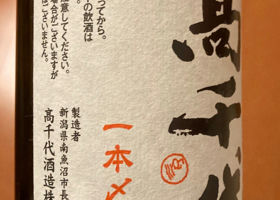 髙千代
一本〆
ってから。
の飲酒は
注意してください。
場合がございますが
ございません。
製造者
新潟県南魚沼市長
高千代酒造株